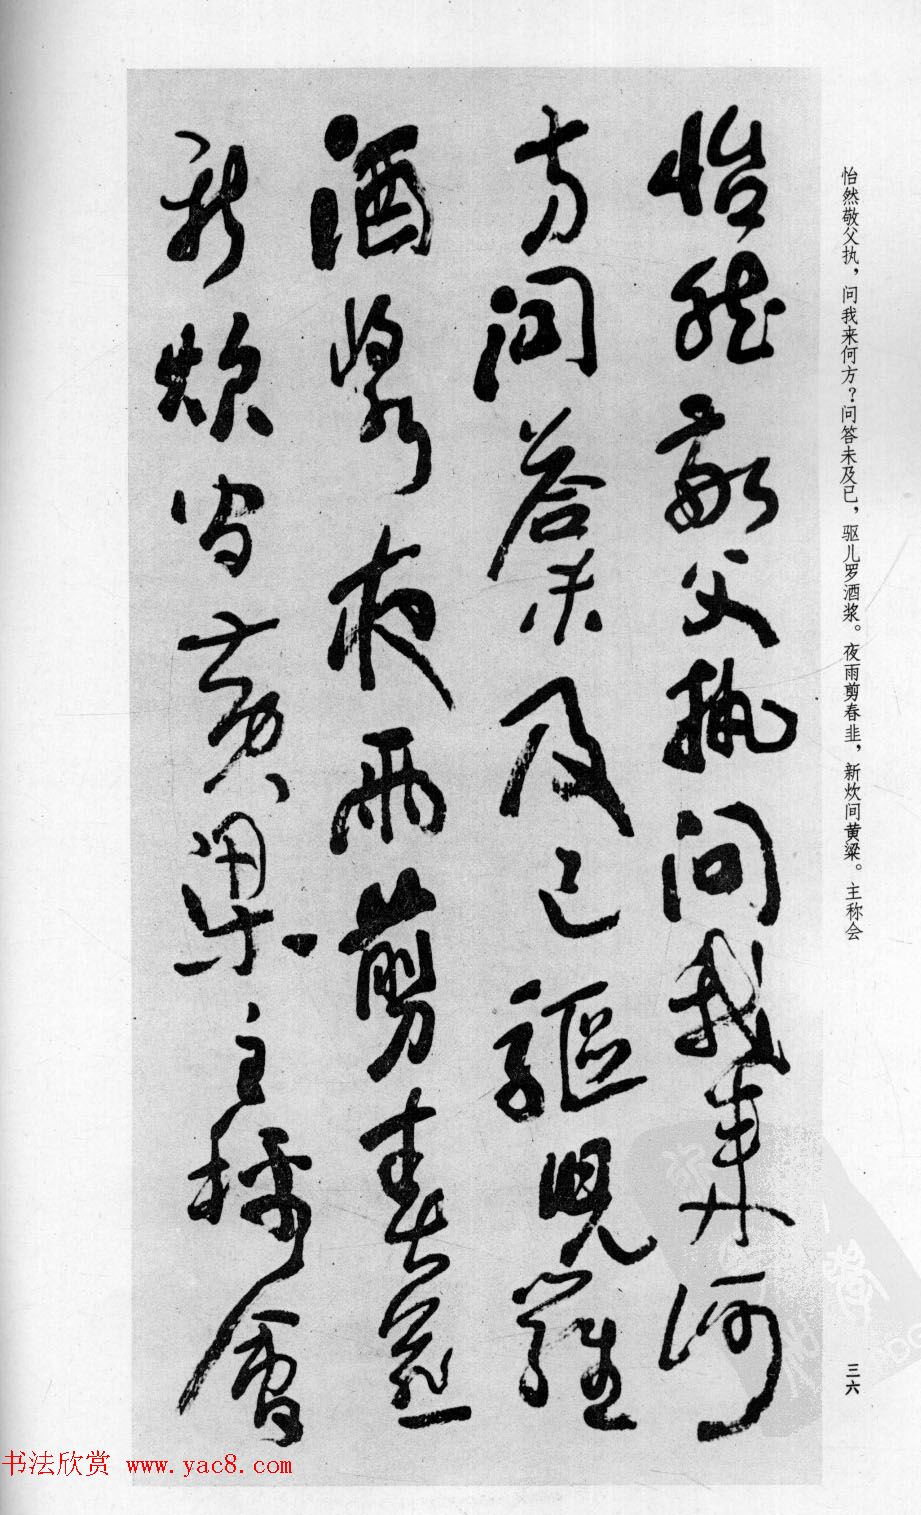 怡然敬父執問我来何
方問答未及已驅兒羅
酒漿夜雨剪春韭
新炊间黄粱主稱會
怡然敬父执，问我来何方？问答未及已，驱儿罗酒浆。夜雨剪春韭，新炊间黄粱。主称会
三六
书法欣赏 www.yac8.com